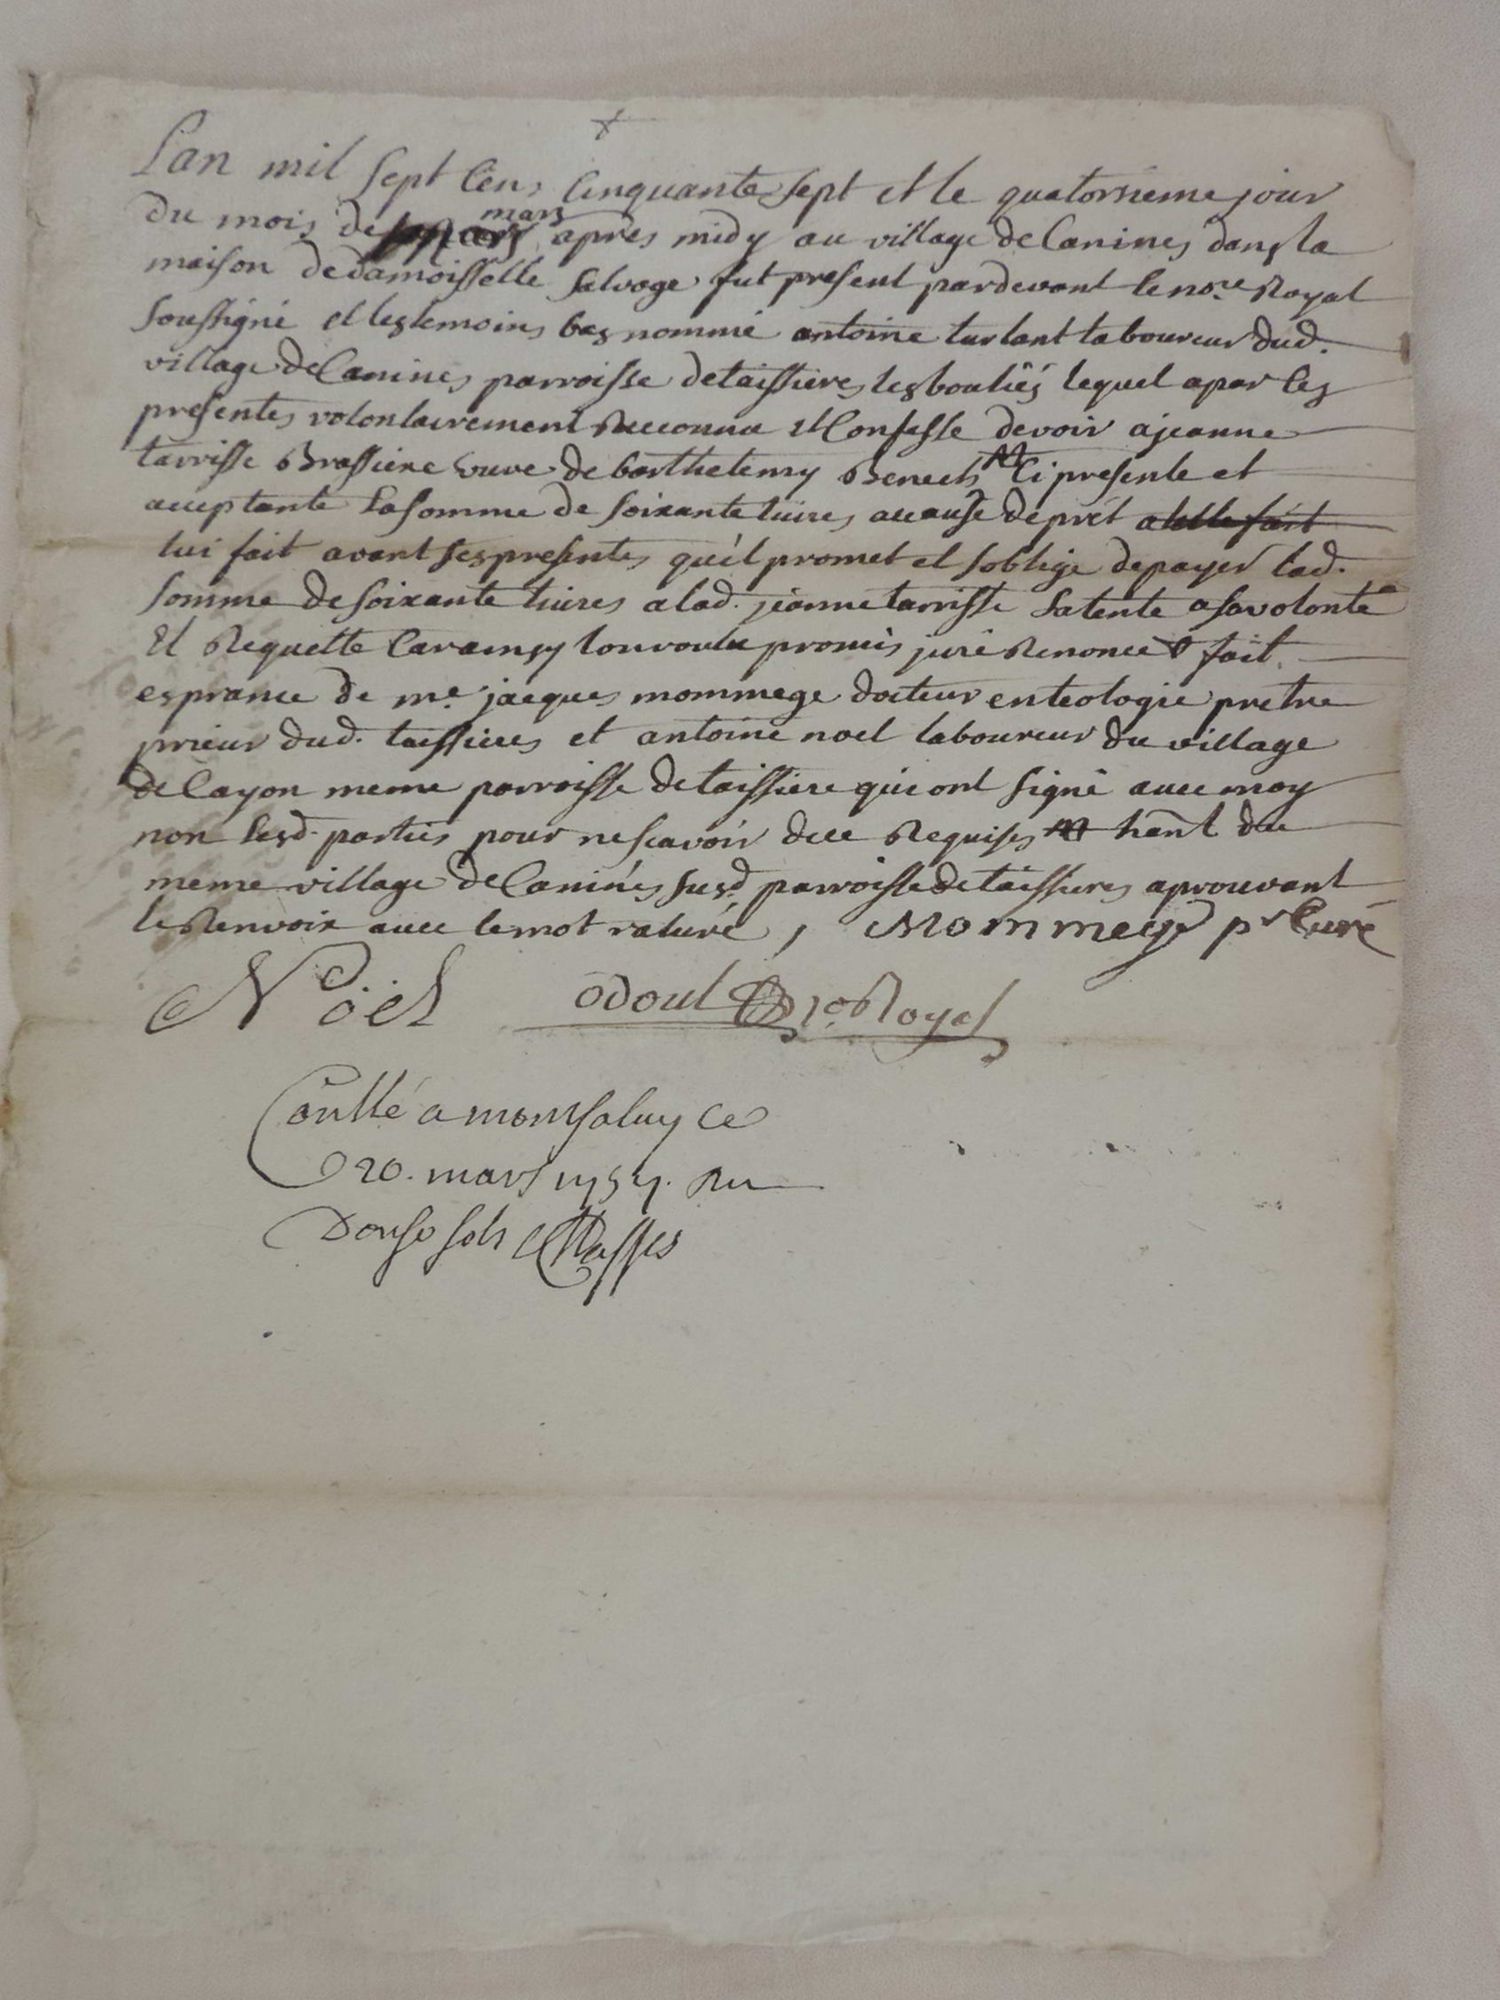 Lan mil sept Cens Cinquante sept et le quatorsieme jour
du mois de mars apres midy au village de Canines dans la
maison de damoisselle Salvage fut present pardevant le no.re Royal
soussigné et les temoins bas nommé antoine turlant laboureur dud.
village de Canines parroisse de taissieres les bouliés lequel a par ces
presentes volontairement Reconnu et Confesse devoir a jeanne
tarrisse Brassiere veuve de barthelemy Benech Ci presente et
acceptante La somme de soixante livres a cause de prêt a elle fait
lui fait avant ses presentes qu'il promet et soblige de payer lad.
somme de soixante livres a lad. jeanne tarrisse sa tente a sa volonté
Et Requette Car ainsy lon voulu promis juré Renoncé fait
es prance de m.e jacques mommege docteur en teologie pretre
prieur dud. taissieres et antoine noel laboureur du village
de Cayon meme parroisse de taissiere qui ont signé avec moy
non lesd. parties pour ne scavoir de ce Requises hant du
meme village de Canines susd. parroisse de taissieres aprouvant
le Renvoix avec le mot raturé, Mommege p.r Curé
Noël odoul no.re Royal
Conllé a montsalvy ce
20. mars 1757. Reçu
Douse sols